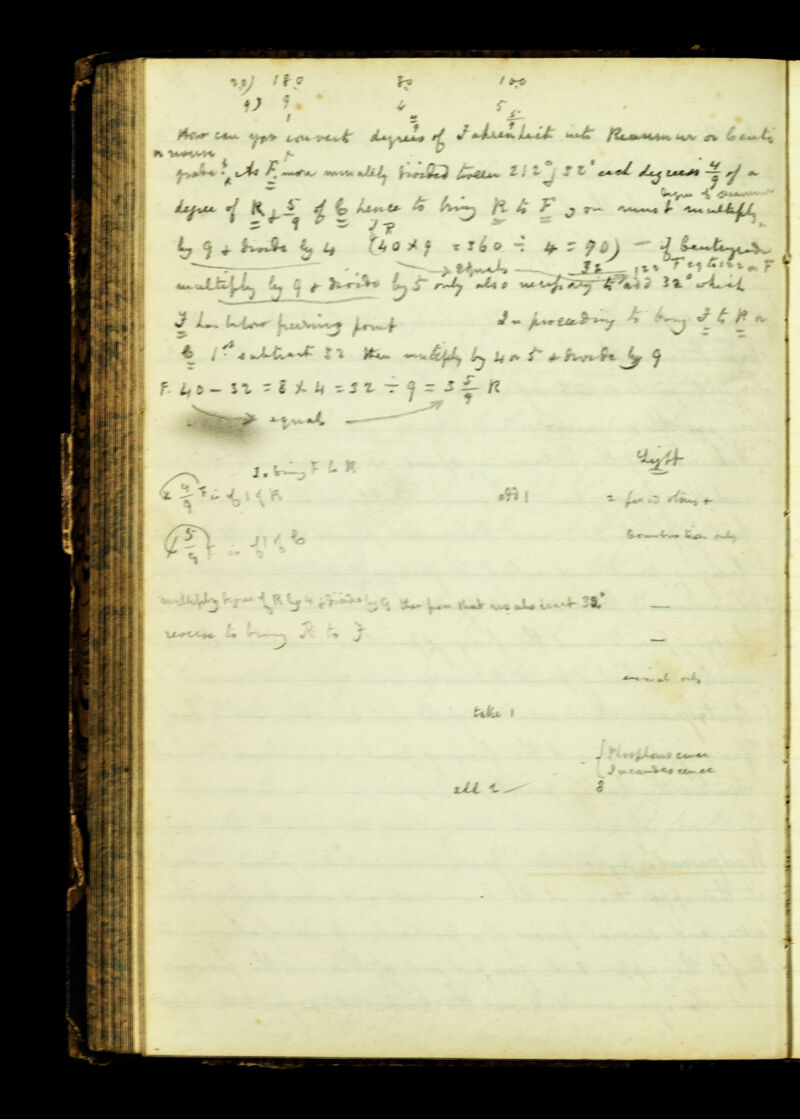 20) 180 80 100
9) 9 4 5
1 4/9 5/9
How can you convert degrees of Fahrenheit into Reaumur or Centi
or reverse
grade? As F. more minutely divided tween 212° & 32° each degree is 4/9 of a
degree of R & 5/9 of C hence to bring R to F you must multiply
by 9 & divide by 4 (40 × 9 = 360 ÷ 4 = 90) — if Centigrade
equals 32 122 F
multiply by 9 & divide by 5 only also necessary to add 32° which
F has below freezing point In proceeding to bring F to R or
C 1st subtract 32 then multiply by 4 or 5 & divide by 9
F. 40 – 32 = 8 × 4 = 32 ÷ 9 = 3 5/9 R
equals
Light
To bring F to R
× 4/9 F is of 1 of R add 1 2 fixed stars +
× 5/9 F is of 1 of C Combustion only
multiply degree of R by 4 & divide by 9 then from that 32°
reverse to bring R to F —
only
take 1
{ Phosphorescence
{ Incandescence
add 2 — 8